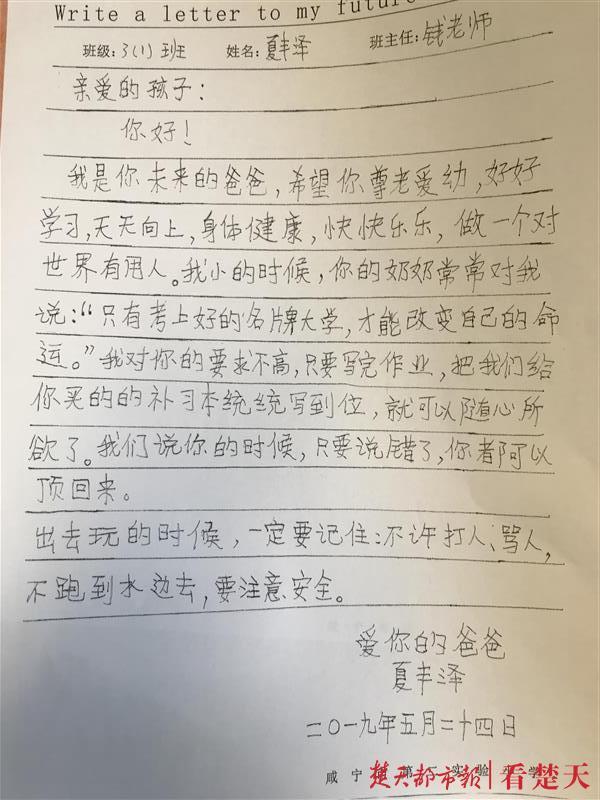 Write a letter to my future
班级：3(1)班 姓名：夏丰泽 班主任：钱老师
亲爱的孩子：
你好！
我是你未来的爸爸，希望你尊老爱幼，好好
学习，天天向上，身体健康，快快乐乐，做一个对
世界有用人。我小的时候，你的奶奶常常对我
说：“只有考上好的名牌大学，才能改变自己的命
运。”我对你的要求不高，只要写完作业，把我们给
你买的的补习本统统写到位，就可以随心所
欲了。我们说你的时候，只要说错了，你都可以
顶回来。
出去玩的时候，一定要记住：不许打人、骂人，
不跑到水边去，要注意安全。
爱你的爸爸
夏丰泽
二0一九年五月二十四日
咸宁 第 实验 学
楚天都市报|看楚天